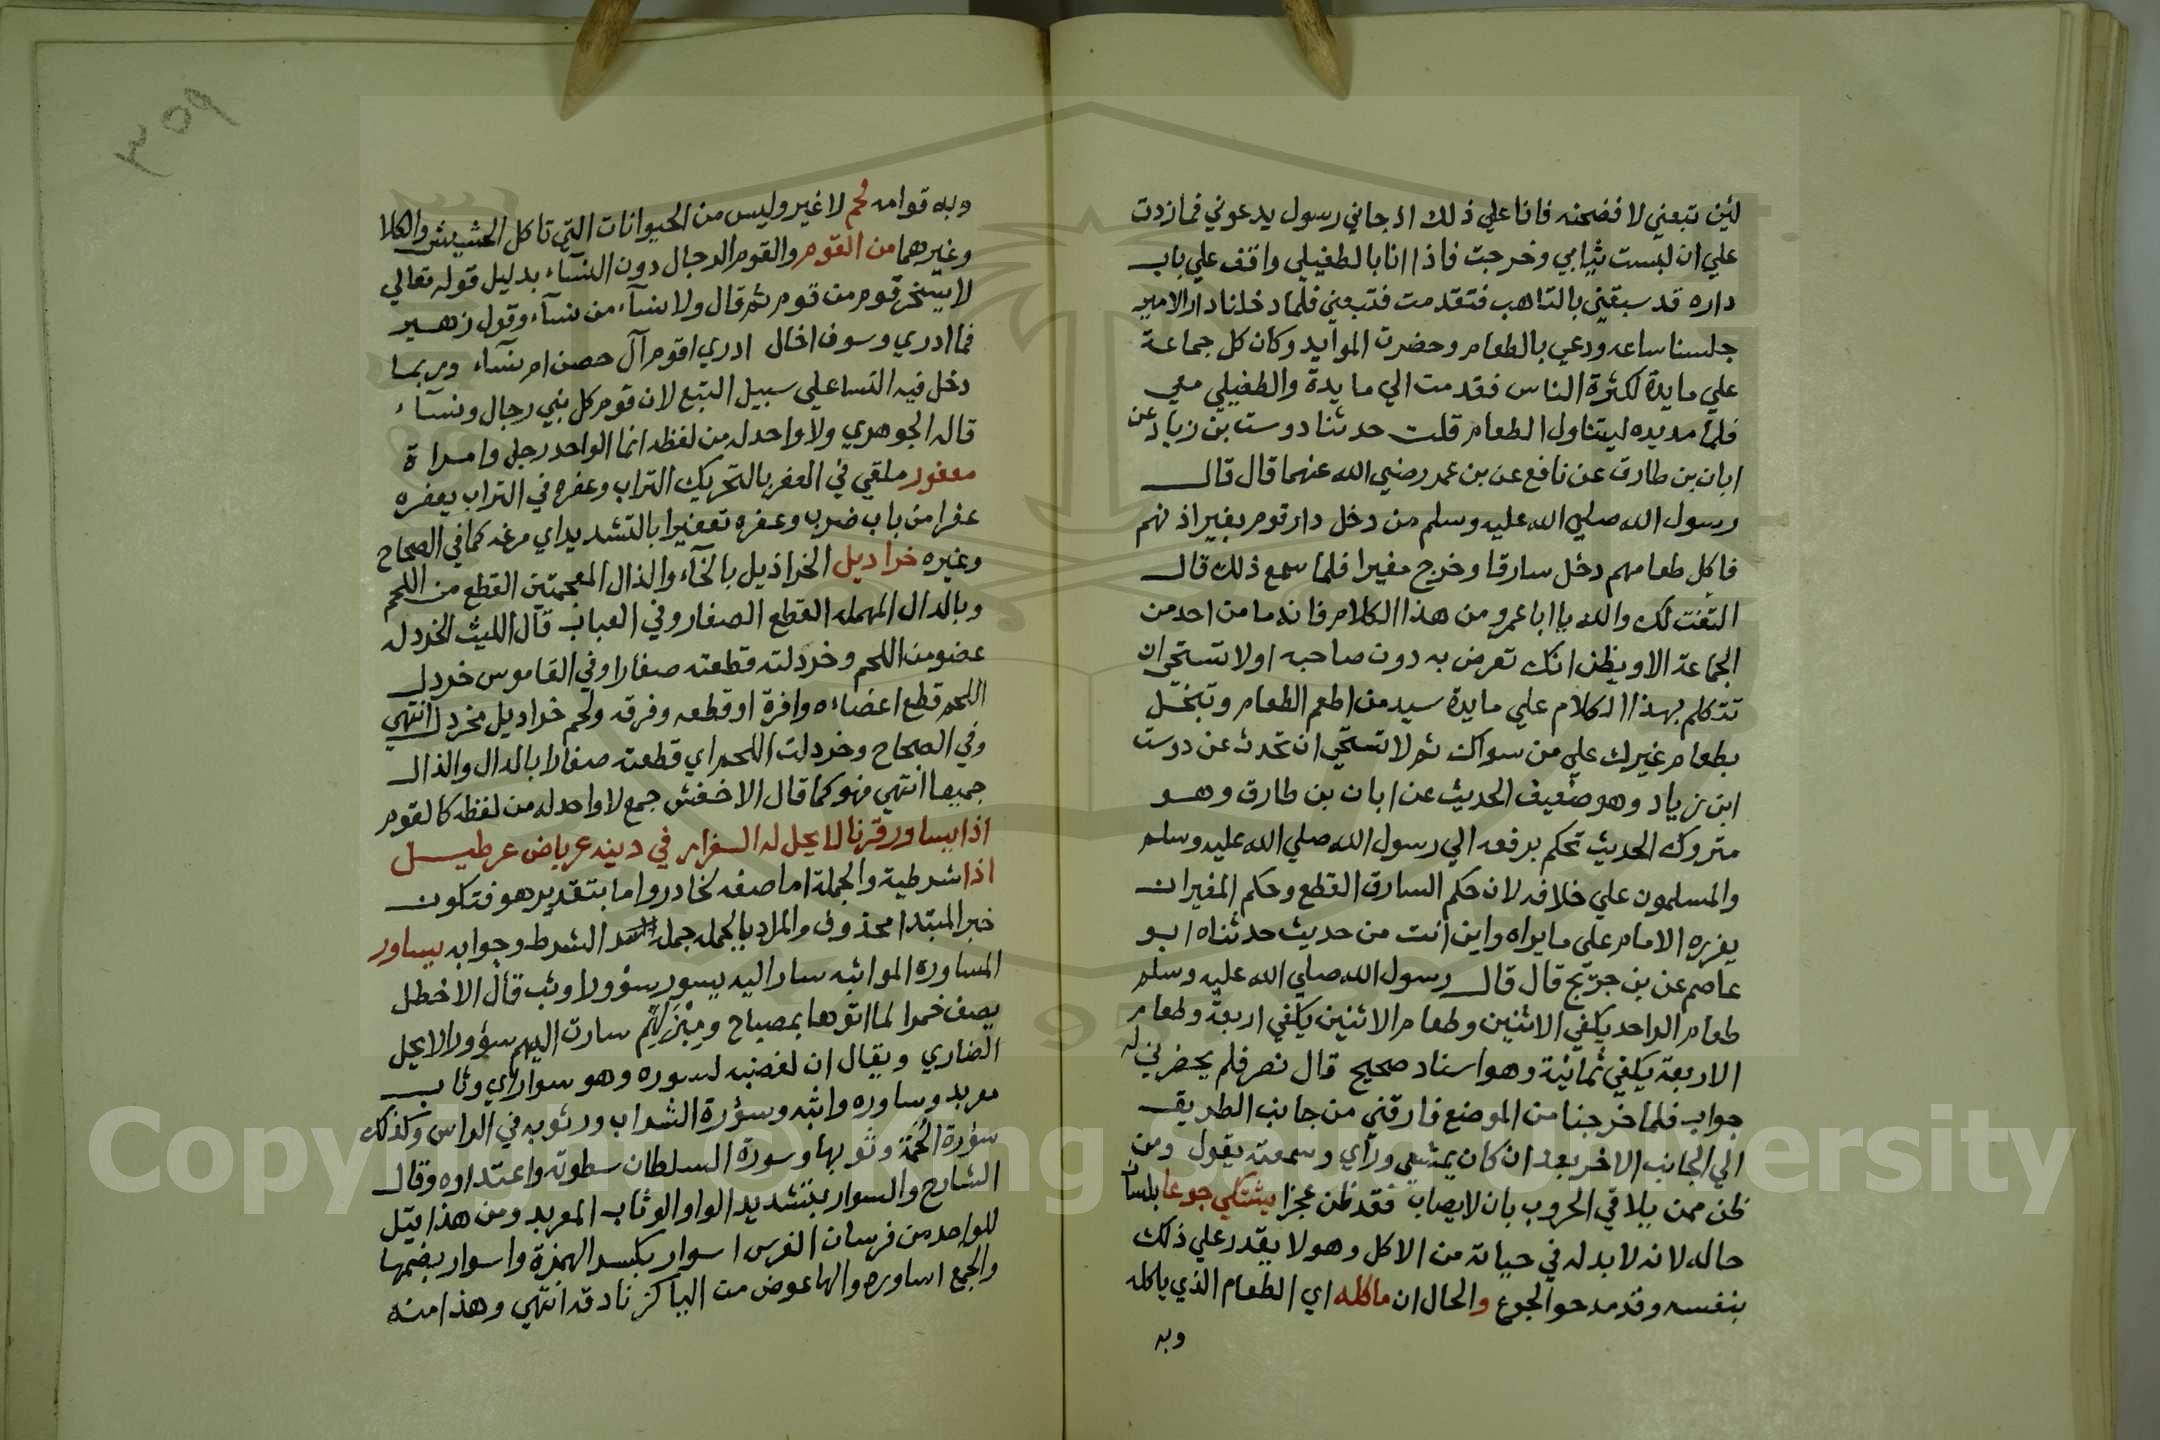 لئن تبعني لا فضحنه فانا علي ذلك اذ جاني رسول يدعوني فما زدت
علي ان لبست ثيابي وخرجت فاذا انا بالطفيلي واقف علي باب
داره قد سبقني بالتاهب فتقدمت فتبعني فلما دخلنا دار الامير
جلسنا ساعه ودعي بالطعام وحضرت الموايد وكان كل جماعة
علي مايدة لكثرة الناس فقدمت الي مايدة والطفيلي معي
فلما مد يده ليتناول الطعام قلت حدثنا دوست بن زياد عن
ابان بن طارق عن نافع عن بن عمر رضي الله عنهما قال قال
رسول الله صلي الله عليه وسلم من دخل دار قوم بغير اذنهم
فاكل طعامهم دخل سارقا وخرج مغيرا فلما سمع ذلك قال
التفت لك والله يا ابا عمرو من هذا الكلام فانه ما من احد من
الجماعة الا ويظن انك تعرض به دون صاحبه اولا تستحي ان
تتكلم بهذا الكلام علي مايدة سيد من اطعم الطعام وتبخل
بطعام غيرك علي من سواك ثم لا تستحي ان تحدث عن دوست
ابن زياد وهو ضعيف الحديث عن ابان بن طارق وهو
متروك الحديث تحكم برفعه الي رسول الله صلي الله عليه وسلم
والمسلمون علي خلافه لان حكم السارق القطع وحكم المغير ان
يعزره الامام علي ما يراه واين انت من حديث حدثناه ابو
عاصم عن بن جريج قال قال رسول الله صلي الله عليه وسلم
طعام الواحد يكفي الاثنين وطعام الاثنين يكفي اربعة وطعام
الاربعة يكفي ثمانية وهو اسناد صحيح قال نصر فلم يحضرني له
جواب فلما خرجنا من الموضع فارقني من جانب الطريق
الي الجانب الاخر بعد ان كان يمشي وراي وسمعته يقول ومن
ظن ممن يلاقي الحروب بان لا يصاب فقد ظن عجزا يشتكي جوعا بلسان
حاله لانه لا بد له في حياته من الاكل وهو لا يقدر علي ذلك
بنفسه وقد مدحوا الجوع والحال ان ماكله اي الطعام الذي ياكله
وبه
٣٥٩
وبه قوامه لحم لا غير وليس من الحيوانات التي تاكل الحشيش والكلا
وغيرهما من القوم والقوم الرجال دون النسآء بدليل قوله تعالي
لا يسخر قوم من قوم ثم قال ولا نسآء من نسآء وقول زهير
فما ادري وسوف اخال ادري اقوم آل حصن ام نسآء وربما
دخل فيه النسا علي سبيل التبع لان قوم كل نبي رجال ونسآء
قاله الجوهري ولا واحد له من لفظه انما الواحد رجل وامراة
معفور ملقي في العفر بالتحريك التراب وعفره في التراب يعفره
عفرا من باب ضرب وعفره تعفيرا بالتشديد اي مرغه كما في الصحاح
وغيره خراديل الخراذيل بالخآء والذال المعجمتين القطع من اللحم
وبالدال المهمله القطع الصغار وفي العباب قال الليث الخردله
عضو من اللحم وخردلته قطعته صغارا وفي القاموس خردل
اللحم قطع اعضاءه وافرة او قطعه وفرقه ولحم خراديل مخردل انتهي
وفي الصحاح وخردلت اللحم اي قطعته صغارا بالدال والذال
جميعا انتهي فهو كما قال الاخفش جمع لا واحد له من لفظه كالقوم
اذا يساور قرنا لا يحل له الفرار في دينه عرياض عرطيل
اذا شرطية والجملة اما صفه لخادر واما بتقدير هو فتكون
خبر المبتدا محذوف والمراد بالجمله جملة الشرط وجوابه يساور
المساوره المواثبه سار اليه يسور سؤورا وثب قال الاخطل
يصف خمرا لما اتوها بمصباح ومبزلهم سارت اليهم سؤور الابجل
الضاري ويقال ان لغضبه لسوره وهو سوار اي وثاب
معربد وساوره واثبه وسؤرة الشراب وثوبه في الراس وكذلك
سؤرة الحمة وثوبها وسورة السلطان سطوته واعتداوه وقال
الشارح والسوار بتشديد الواو الوثاب المعربد ومن هذا قيل
للواحد من فرسان الفرس اسوار بكسر الهمزة واسوار بضمها
والجمع اساوره والها عوض من اليا كزنادقه انتهي وهذا منه
Copyright © King Saud University